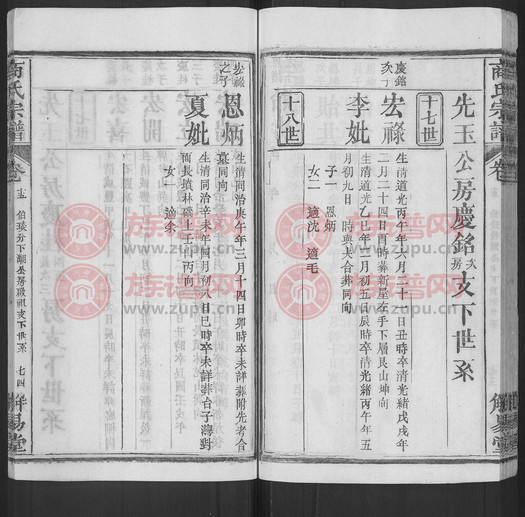 商氏宗譜
先玉公房慶銘次房支下世系
十七世
慶銘次子
宏祿
生清道光丙午年六月二十一日丑時卒清光緒戊戌年
二月二十四日酉時葬新屋左手下層艮山坤向
李妣
生清道光乙巳年二月初五日辰時卒清光緒丙午年五
月初九日 時與夫合葬同向
子一 恩炳
女二 適沈 適毛
十八世
宏祿之子
恩炳
生清同治庚午年三月十四日卯時卒未詳葬附先考合
墓同向
夏妣
生清同治辛未年四月初八日巳時卒未詳葬台子灣對
面長墳林磡上壬山丙向
女一 適余
商氏宗譜
卷
伯琰分下
公房
祖支下世系
七四
解易堂
族譜网
www.zupu.cn